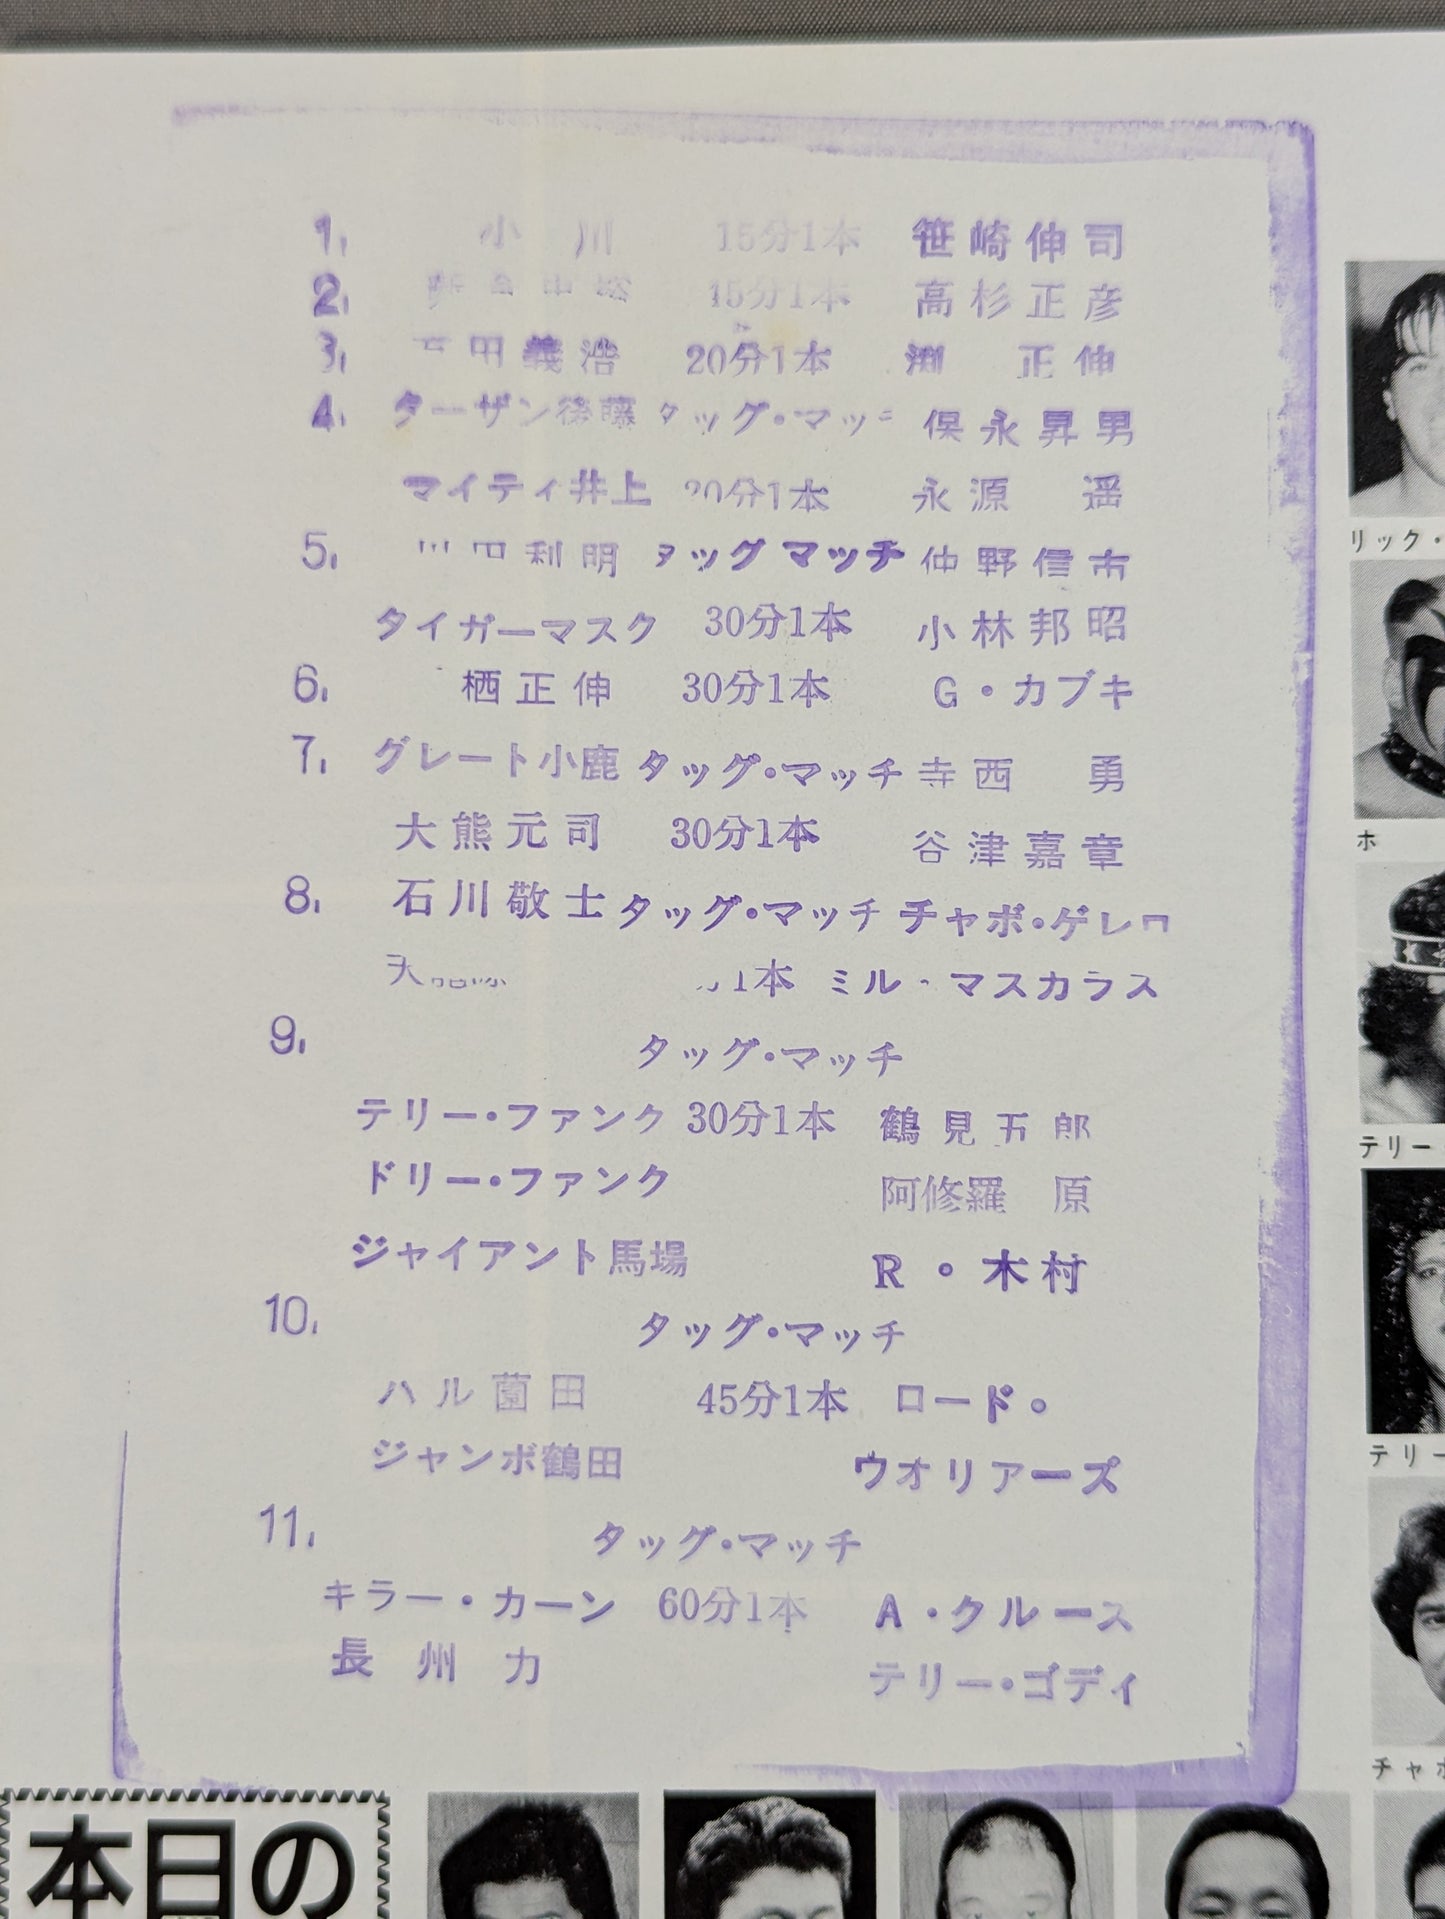 1. 小川 15分1本 笹崎伸司
2. 15分1本 高杉正彦
3. 田義浩 20分1本 渕 正伸
4. ターザン後藤 タッグ・マッチ 俣永昇男
マイティ井上 20分1本 永源 遥
5. 川田利明 タッグマッチ 仲野信市
タイガーマスク 30分1本 小林邦昭
6. 栖正伸 30分1本 G・カブキ
7. グレート小鹿 タッグ・マッチ 寺西 勇
大熊元司 30分1本 谷津嘉章
8. 石川敬士 タッグ・マッチ チャボ・ゲレロ
天 1本 ミル・マスカラス
9. タッグ・マッチ
テリー・ファンク 30分1本 鶴見五郎
ドリー・ファンク 阿修羅 原
ジャイアント馬場 R・木村
10. タッグ・マッチ
ハル薗田 45分1本 ロード・
ジャンボ鶴田 ウオリアーズ
11. タッグ・マッチ
キラー・カーン 60分1本 A・クルース
長州力 テリー・ゴディ
リック・
ホ
テリー
テリー
チャボ
本日の